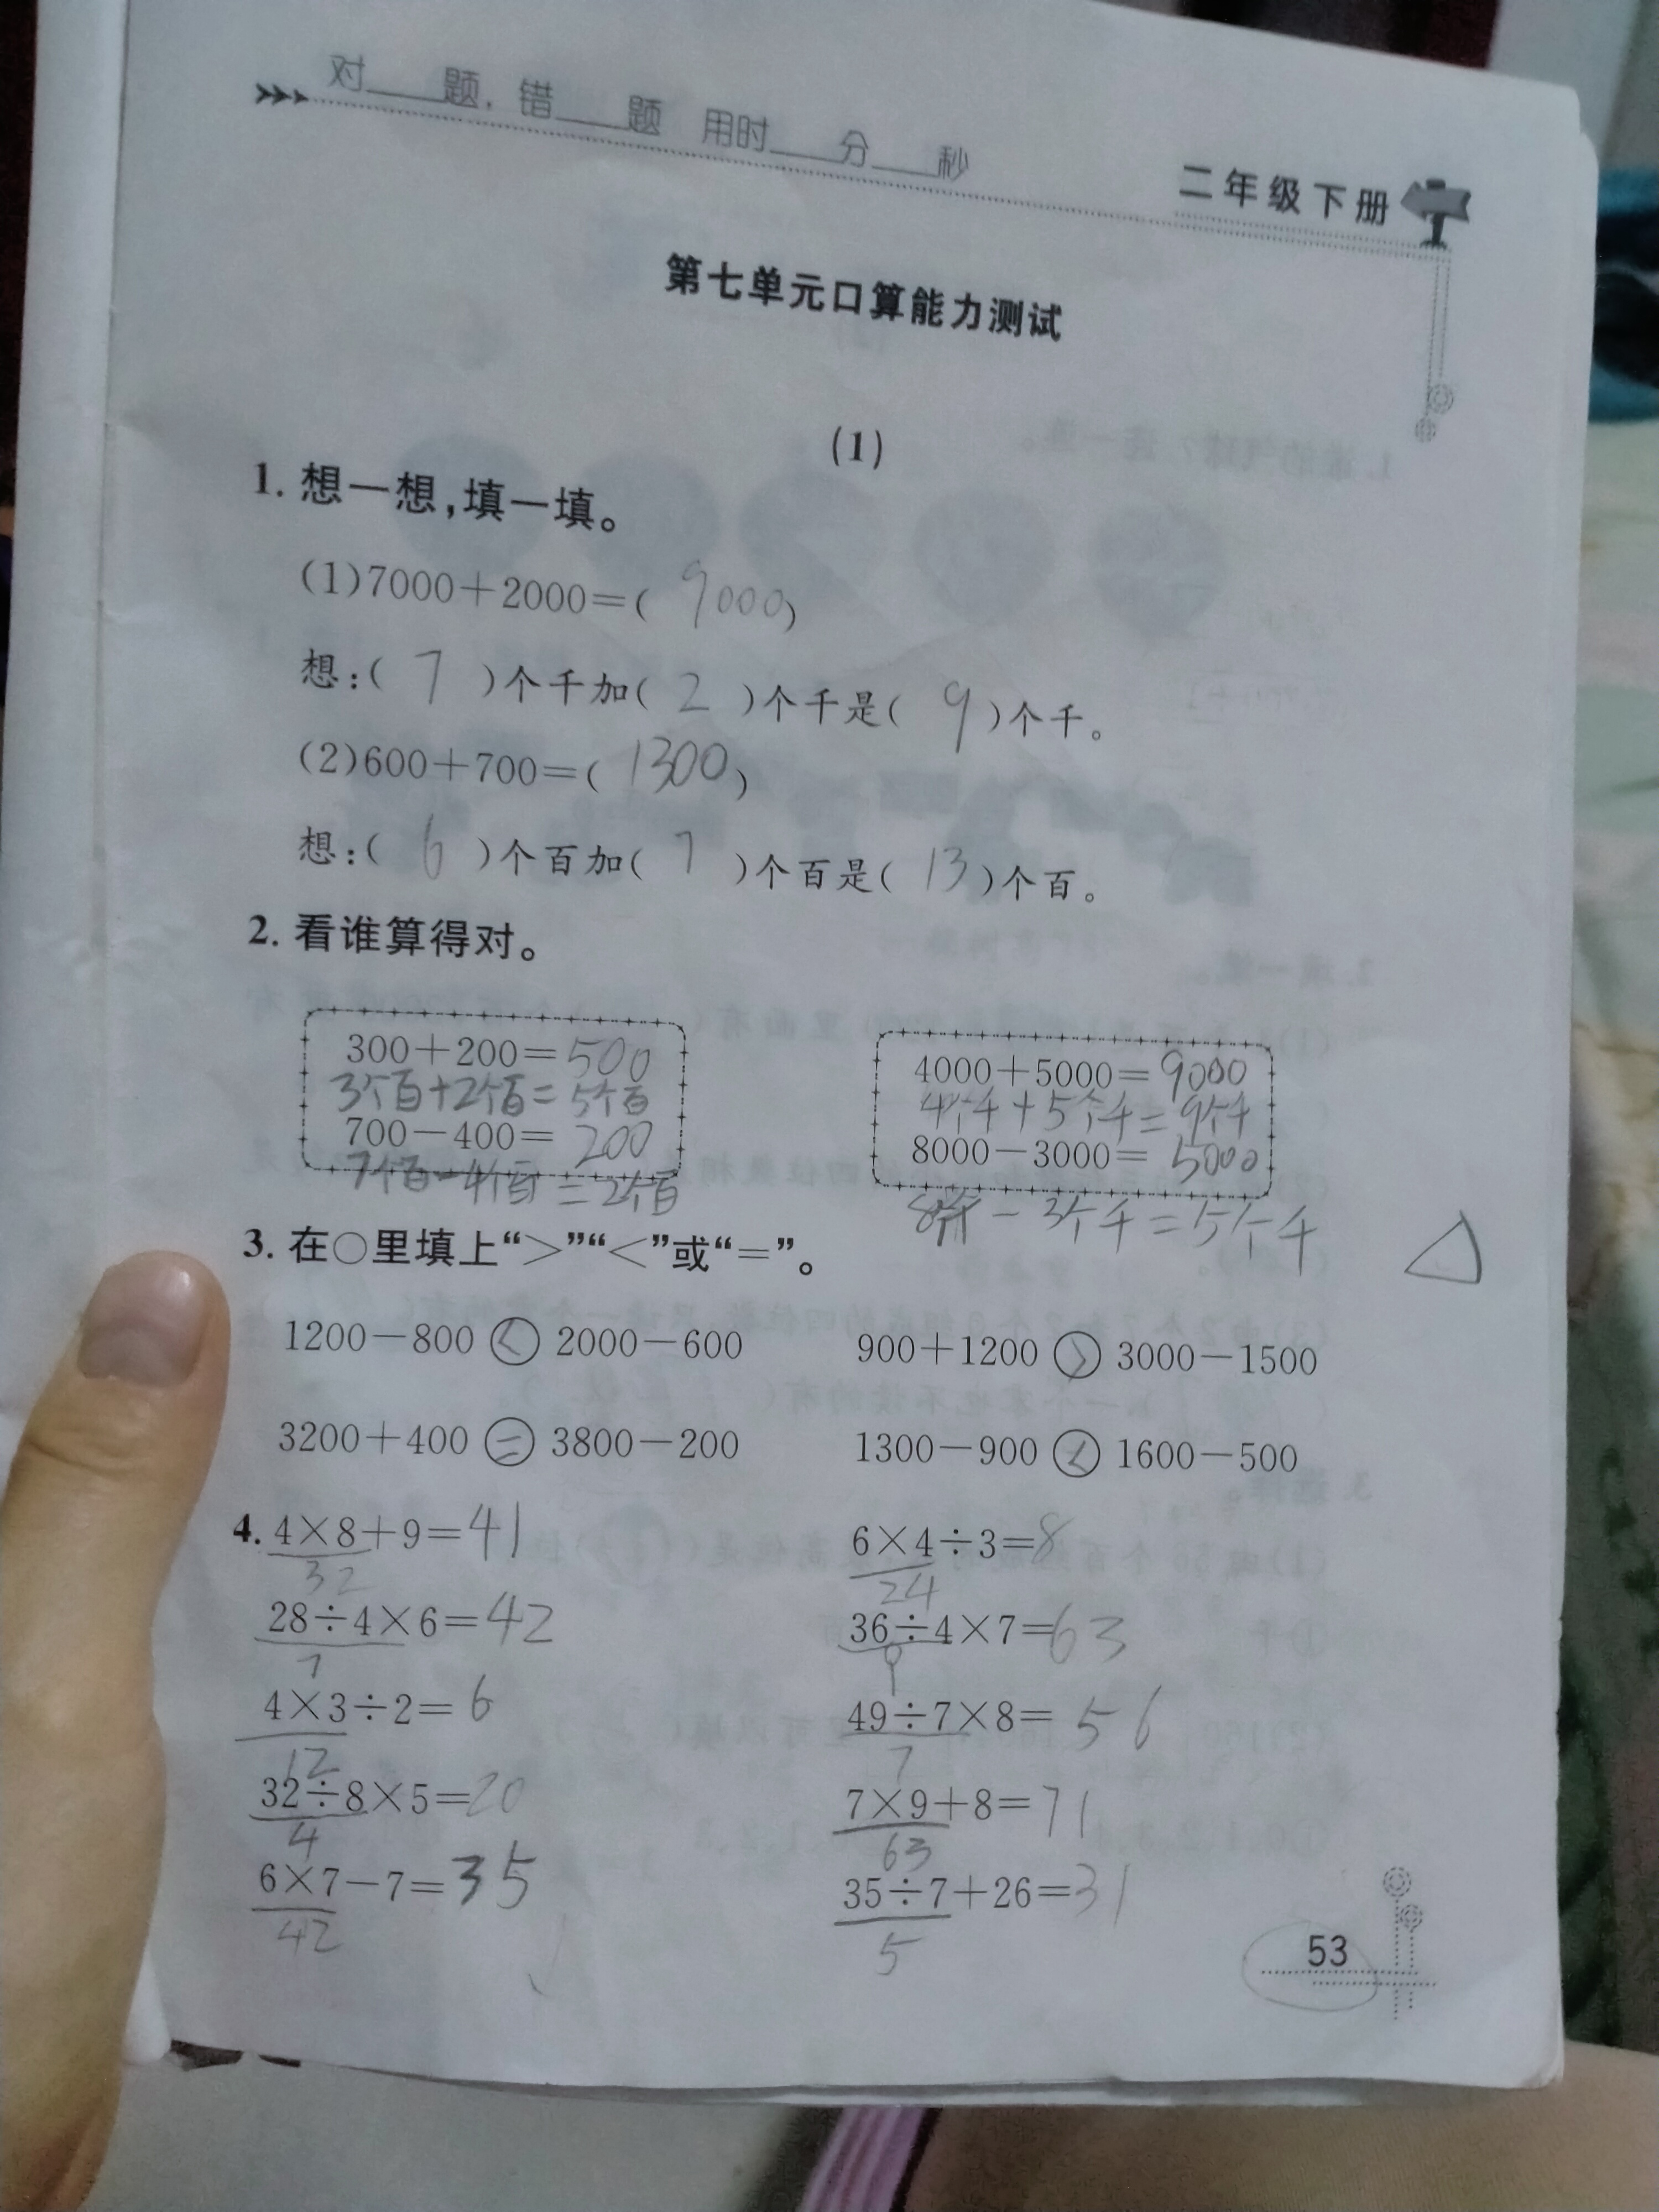 对____题，错____题 用时____分____秒
二年级下册
第七单元口算能力测试
(1)
1. 想一想，填一填。
(1)7000＋2000＝( 9000 )
想：( 7 )个千加( 2 )个千是( 9 )个千。
(2)600＋700＝( 1300 )
想：( 6 )个百加( 7 )个百是( 13 )个百。
2. 看谁算得对。
300＋200＝500
3个百+2个百=5个百
700－400＝200
7个百-4个百=2个百
4000＋5000＝9000
4个千+5个千=9个千
8000－3000＝5000
8个千-3个千=5个千
3. 在○里填上“＞”“＜”或“＝”。
1200－800 < 2000－600 900＋1200 > 3000－1500
3200＋400 = 3800－200 1300－900 < 1600－500
4. 4×8＋9＝41 6×4÷3＝8
32 24
28÷4×6＝42 36÷4×7＝63
7 9
4×3÷2＝6 49÷7×8＝56
12 7
32÷8×5＝20 7×9＋8＝71
4 63
6×7－7＝35 35÷7＋26＝31
42 5
53